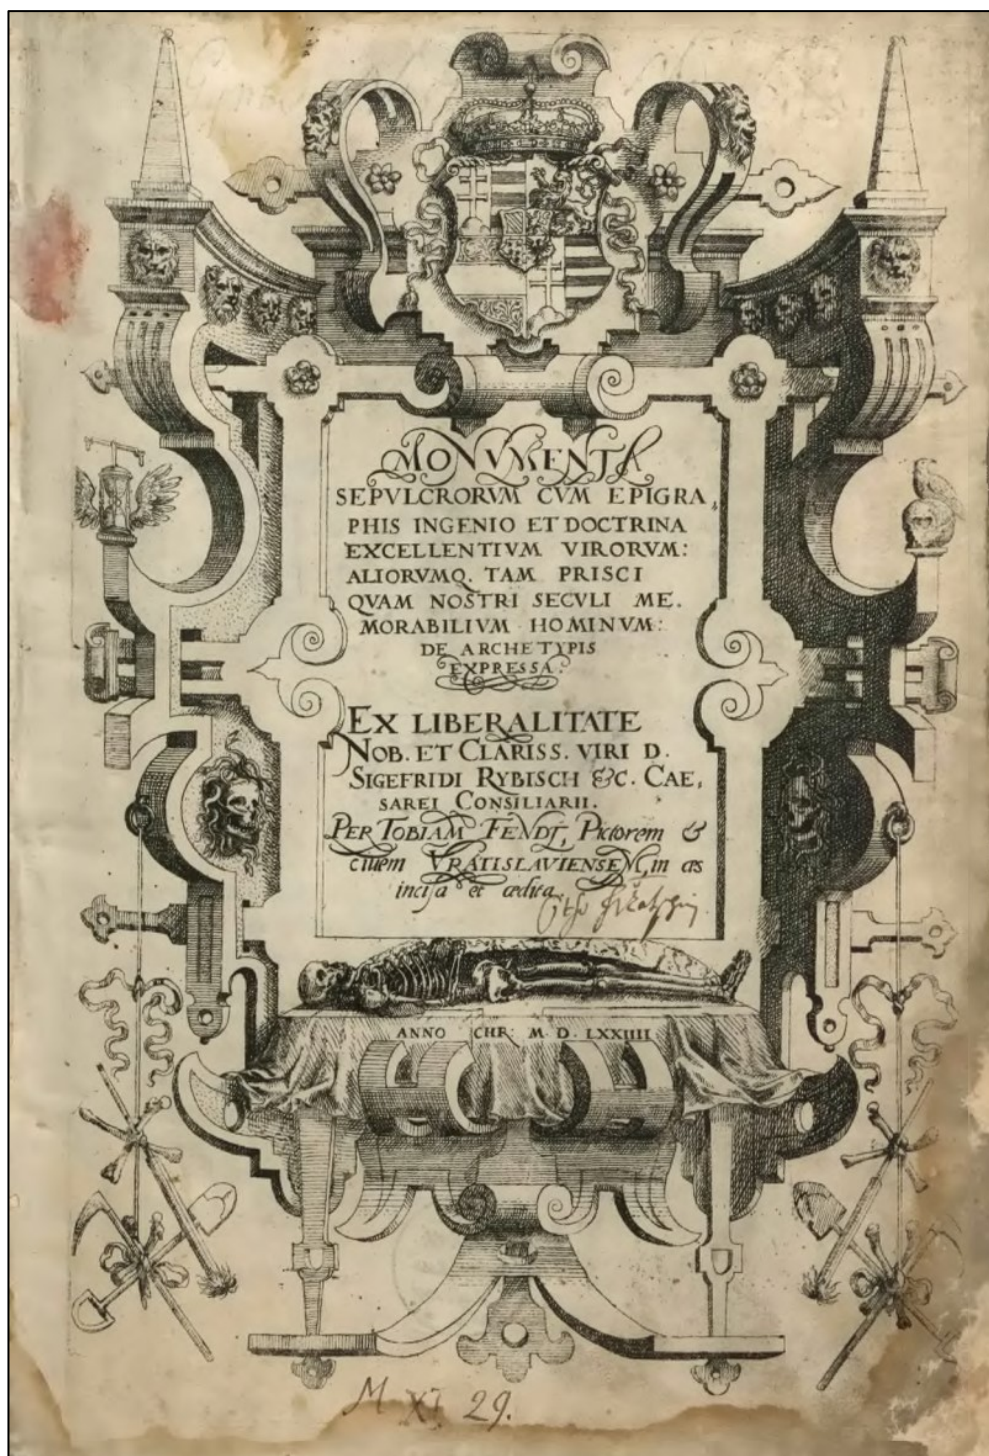 MONVMENTA
SEPVLCRORVM CVM EPIGRA,
PHIS INGENIO ET DOCTRINA
EXCELLENTIVM VIRORVM:
ALIORVMQ. TAM PRISCI
QVAM NOSTRI SECVLI ME.
MORABILIVM HOMINVM:
DE ARCHETYPIS
EXPRESSA.
EX LIBERALITATE
NOB. ET CLARISS. VIRI D.
SIGEFRIDI RYBISCH &C. CAE,
SAREI CONSILIARII.
PER TOBIAM FENDT, Pictorem &
ciuem VRATISLAVIENSEM, in æs
incisa et ædita.
ANNO CHR: M. D. LXXIIII
M XI 29.